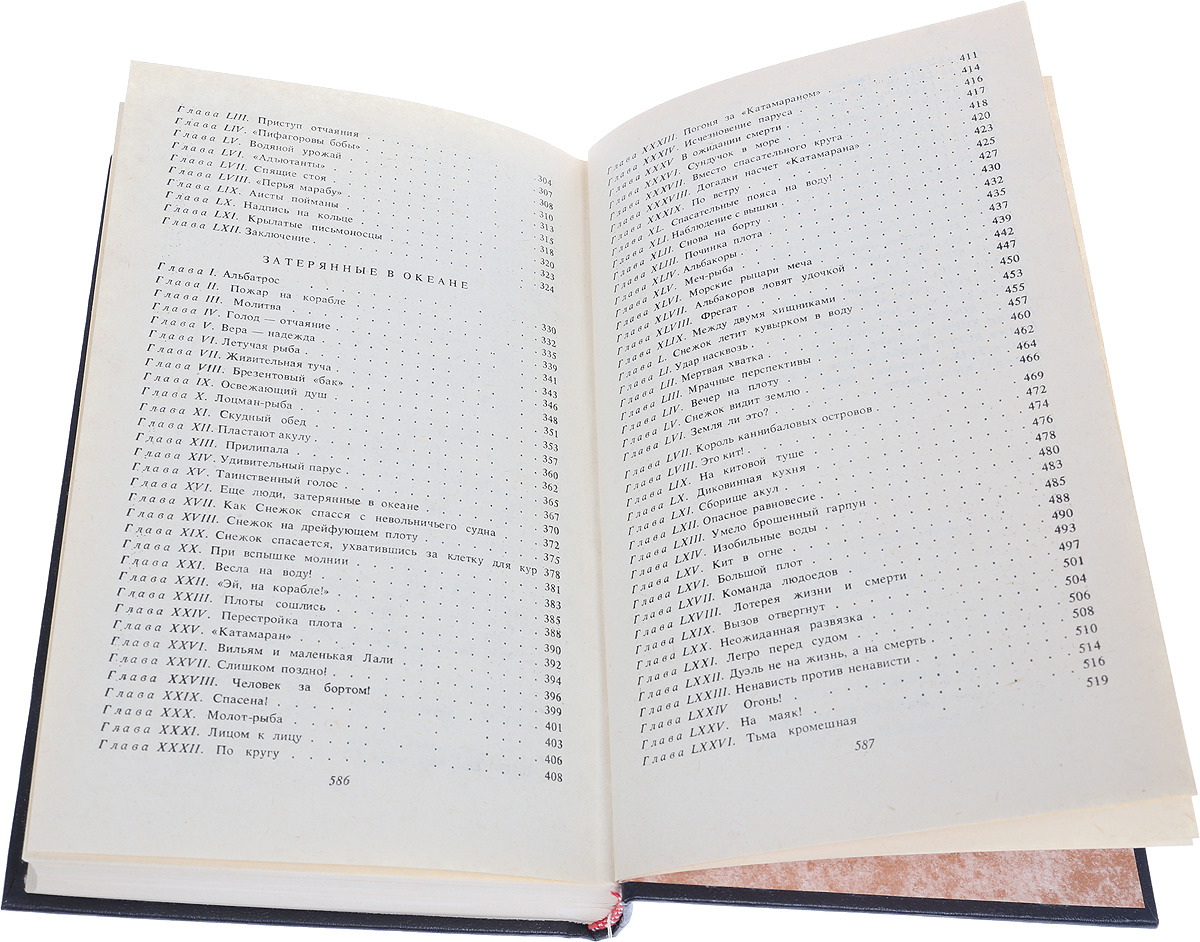 Глава LIII. Приступ отчаяния . . . 304
Глава LIV. «Пифагоровы бобы» . . . 307
Глава LV. Водяной урожай . . . 308
Глава LVI. «Адъютанты» . . . 310
Глава LVII. Спящие стоя . . . 313
Глава LVIII. «Перья марабу» . . . 315
Глава LIX. Аисты пойманы . . . 318
Глава LX. Надпись на кольце . . . 320
Глава LXI. Крылатые письмоносцы . . . 323
Глава LXII. Заключение . . . 324
ЗАТЕРЯННЫЕ В ОКЕАНЕ
Глава I. Альбатрос . . . 330
Глава II. Пожар на корабле . . . 332
Глава III. Молитва . . . 335
Глава IV. Голод — отчаяние . . . 339
Глава V. Вера — надежда . . . 341
Глава VI. Летучая рыба . . . 343
Глава VII. Живительная туча . . . 346
Глава VIII. Брезентовый «бак» . . . 348
Глава IX. Освежающий душ . . . 351
Глава X. Лоцман-рыба . . . 353
Глава XI. Скудный обед . . . 357
Глава XII. Пластают акулу . . . 360
Глава XIII. Прилипала . . . 362
Глава XIV. Удивительный парус . . . 365
Глава XV. Таинственный голос . . . 367
Глава XVI. Еще люди, затерянные в океане . . . 370
Глава XVII. Как Снежок спасся с невольничьего судна . . . 372
Глава XVIII. Снежок на дрейфующем плоту . . . 375
Глава XIX. Снежок спасается, ухватившись за клетку для кур 378
Глава XX. При вспышке молнии . . . 381
Глава XXI. Весла на воду! . . . 383
Глава XXII. «Эй, на корабле!» . . . 385
Глава XXIII. Плоты сошлись . . . 388
Глава XXIV. Перестройка плота . . . 390
Глава XXV. «Катамаран» . . . 392
Глава XXVI. Вильям и маленькая Лали . . . 394
Глава XXVII. Слишком поздно! . . . 396
Глава XXVIII. Человек за бортом! . . . 399
Глава XXIX. Спасена! . . . 401
Глава XXX. Молот-рыба . . . 403
Глава XXXI. Лицом к лицу . . . 406
Глава XXXII. По кругу . . . 408
586
Глава XXXIII. Погоня за «Катамараном» . . . 411
Глава XXXIV. Исчезновение паруса . . . 414
Глава XXXV. В ожидании смерти . . . 416
Глава XXXVI. Сундучок в море . . . 417
Глава XXXVII. Вместо спасательного круга . . . 418
Глава XXXVIII. Догадки насчет «Катамарана» . . . 420
Глава XXXIX. По ветру . . . 423
Глава XL. Спасательные пояса на воду! . . . 425
Глава XLI. Наблюдение с вышки . . . 427
Глава XLII. Снова на борту . . . 430
Глава XLIII. Починка плота . . . 432
Глава XLIV. Альбакоры . . . 435
Глава XLV. Меч-рыба . . . 437
Глава XLVI. Морские рыцари меча . . . 439
Глава XLVII. Альбакоров ловят удочкой . . . 442
Глава XLVIII. Фрегат . . . 447
Глава XLIX. Между двумя хищниками . . . 450
Глава L. Снежок летит кувырком в воду . . . 453
Глава LI. Удар насквозь . . . 455
Глава LII. Мертвая хватка . . . 457
Глава LIII. Мрачные перспективы . . . 460
Глава LIV. Вечер на плоту . . . 462
Глава LV. Снежок видит землю . . . 464
Глава LVI. Земля ли это? . . . 466
Глава LVII. Король каннибаловых островов . . . 469
Глава LVIII. Это кит! . . . 472
Глава LIX. На китовой туше . . . 474
Глава LX. Диковинная кухня . . . 476
Глава LXI. Сборище акул . . . 478
Глава LXII. Опасное равновесие . . . 480
Глава LXIII. Умело брошенный гарпун . . . 483
Глава LXIV. Изобильные воды . . . 485
Глава LXV. Кит в огне . . . 488
Глава LXVI. Большой плот . . . 490
Глава LXVII. Команда людоедов . . . 493
Глава LXVIII. Лотерея жизни и смерти . . . 497
Глава LXIX. Вызов отвергнут . . . 501
Глава LXX. Неожиданная развязка . . . 504
Глава LXXI. Легро перед судом . . . 506
Глава LXXII. Дуэль не на жизнь, а на смерть . . . 508
Глава LXXIII. Ненависть против ненависти . . . 510
Глава LXXIV Огонь! . . . 514
Глава LXXV. На маяк! . . . 516
Глава LXXVI. Тьма кромешная . . . 519
587